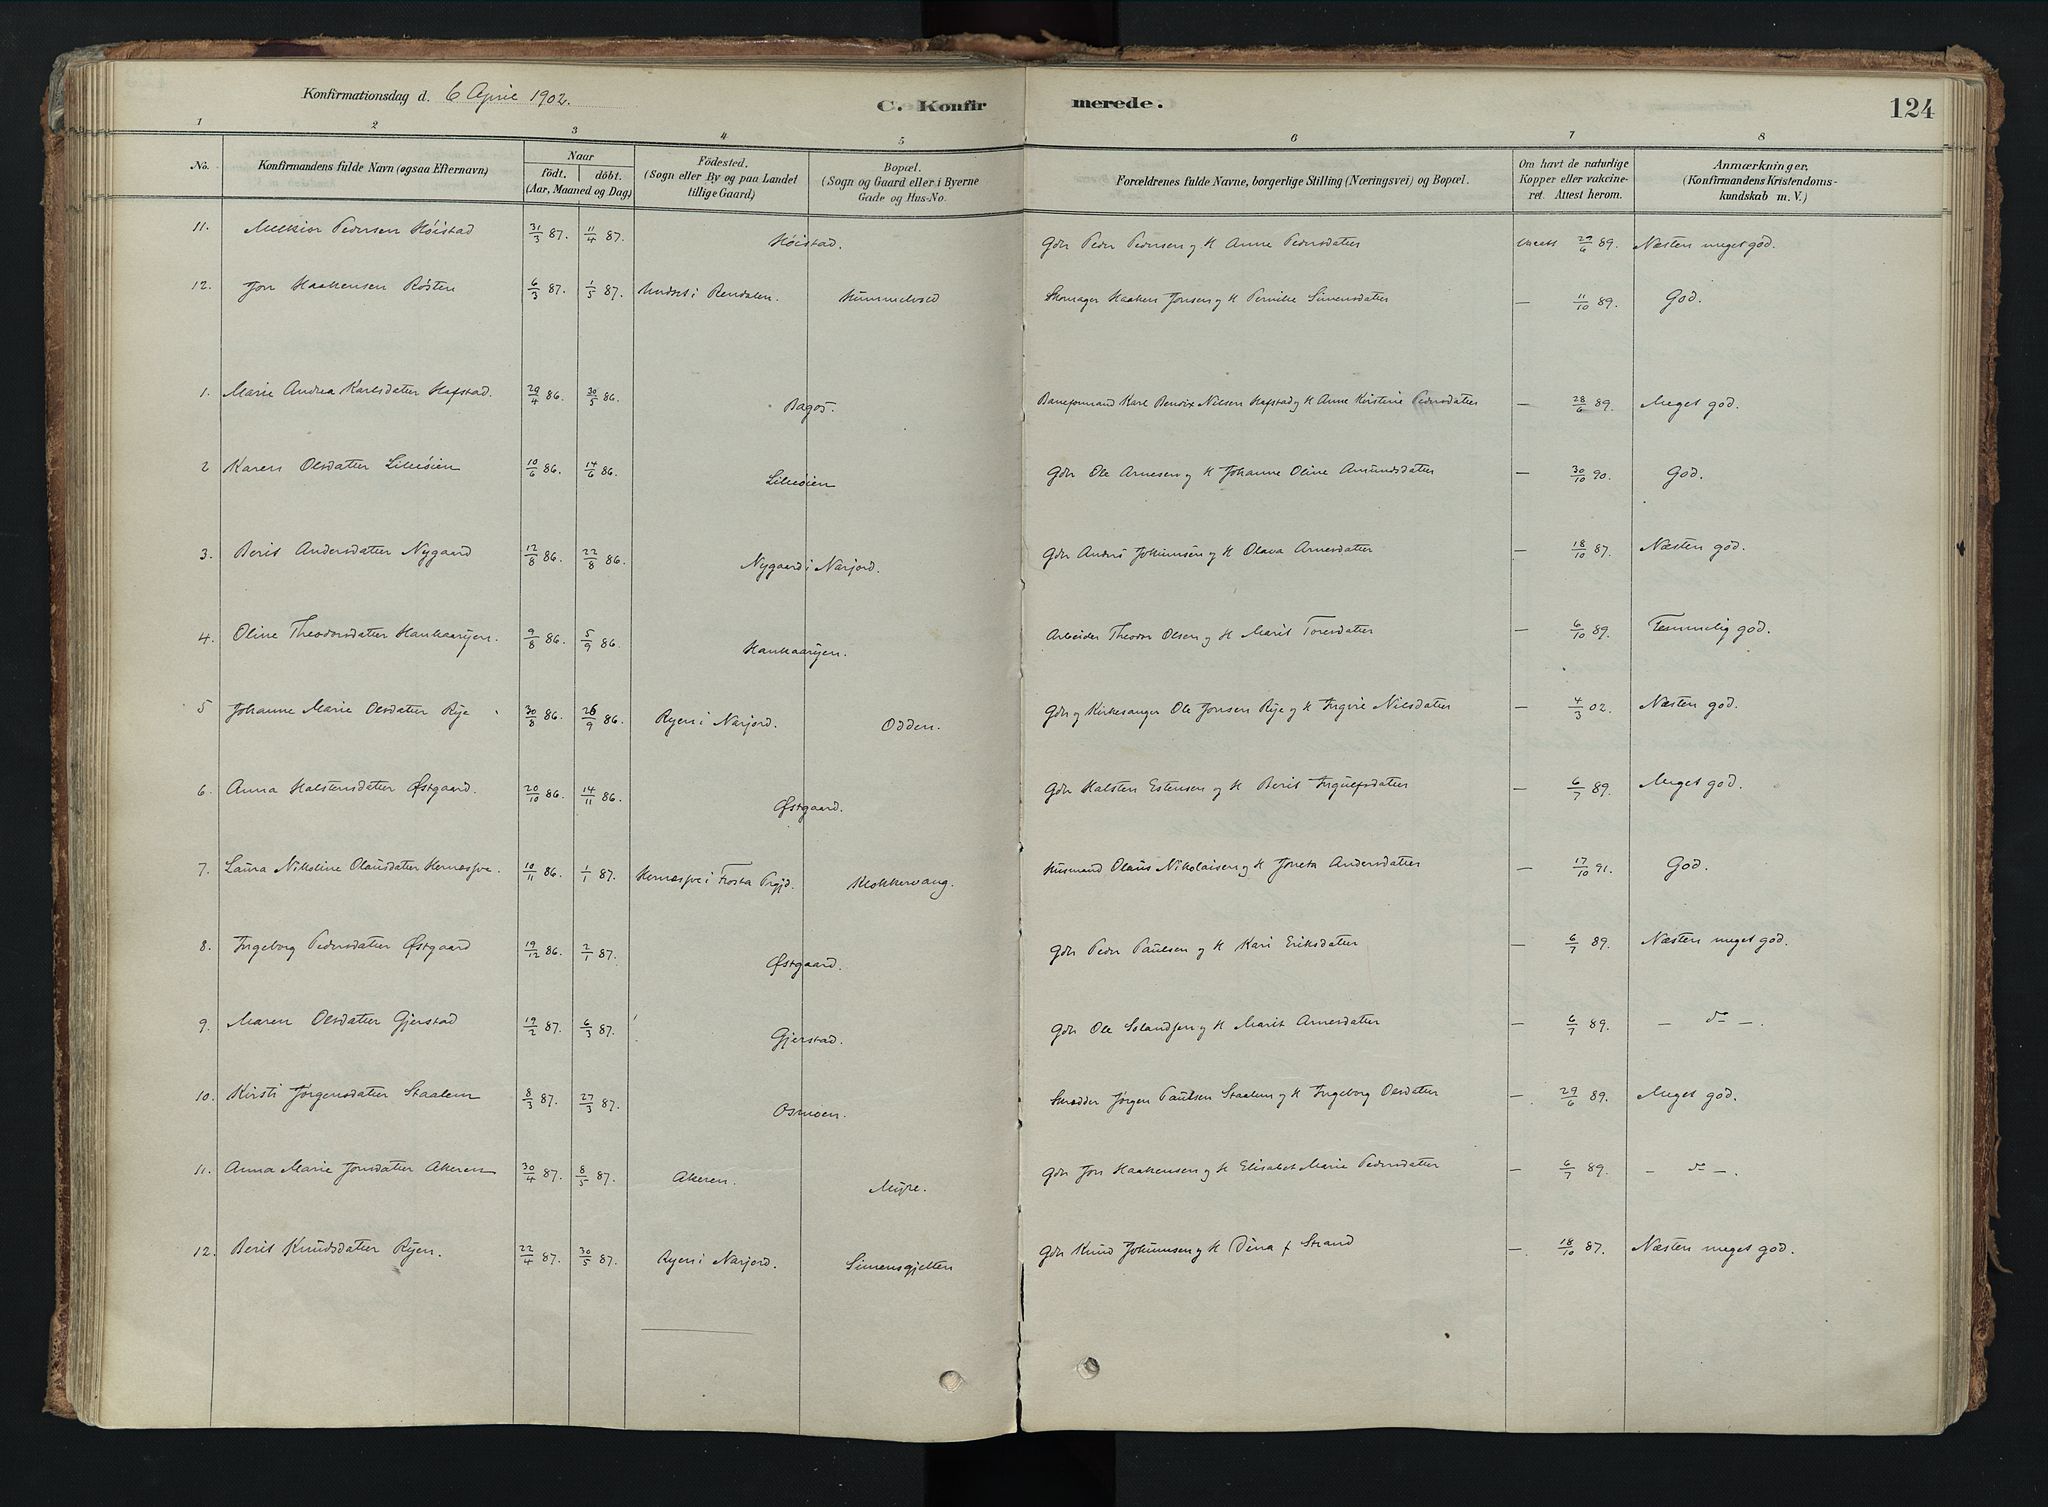 Konfirmationsdag d. 6 April 1902.
C. Konfir merede. 124
1 2 3 4 5 6 7 8
No. Konfirmandens fulde Navn (ogsaa Efternavn) Naar födt. döbt. (Aar, Maaned og Dag) Födested. (Sogn eller By og paa Landet tillige Gaard) Bopæl. (Sogn og Gaard eller i Byerne Gade og Hus-No. Forældrenes fulde Navne, borgerlige Stilling (Næringsvei) og Bopæl. Om havt de naturlige Kopper eller vakcineret. Attest herom. Anmærkninger, (Konfirmandens Kristendomskundskab m. V.)
11. Melkior Pedersen Höistad 31/3 87. 11/4 87. Höistad. Gdr Peder Pedersen og H Anne Pedersdatter vacc 29/6 89. Næsten meget god.
12. Jon Haakensen Røsten 6/3 87. 1/5 87. Undset i Rendalen. Hummelvold Skomager Haaken Jonsen og H Pernille Simensdatter — 11/10 89. God.
1. Marie Andrea Karlsdatter Hafstad. 29/4 86. 30/5 86. Bagos. Baneformand Karl Bendix Nilsen Hafstad og H Anne Kirstine Pedersdatter — 28/6 89. Meget god.
2 Karen Olsdatter Lilleöien 10/6 86. 14/6 86. Lilleöien Gdr Ole Arnesen og H Johanne Oline Amundsdatter — 30/10 90. God.
3. Berit Andersdatter Nygaard 12/8 86. 22/8 86. Nygaard i Narjord. Gdr Anders Johnnsen og H Olava Arnesdatter — 18/10 87. Næsten god.
4. Oline Theodorsdatter Hanhaarjen. 9/8 86. 5/9 86. Hanhaarjen. Arbeider Theodor Olsen og H Marit Toresdatter — 6/10 89. Temmelig god.
5 Johanne Marie Olsdatter Rye 30/8 86. 26/9 86. Ryen i Narjord. Odden. Gdr og Kirkesanger Ole Jonsen Rye og H Ingrie Nilsdatter — 4/3 02. Næsten god.
6. Anna Halstensdatter Østgaard. 20/10 86. 14/11 86. Østgaard. Gdr Halsten Estensen og H Berit Ingulfsdatter — 6/7 89. Meget god.
7. Laura Nikoline Olausdatter Hernesjve. 10/11 86. 1/1 87. Hernesjve i Frosta Prgjd. Klokkervang. Husmand Olaus Nikolaisen og H Joneta Andersdatter — 17/10 91. God.
8. Ingeborg Pedersdatter Østgaard 19/12 86. 2/1 87. Østgaard. Gdr Peder Paulsen og H Kari Eriksdatter — 6/7 89. Næsten meget god.
9. Maren Olsdatter Gjerstad 19/2 87. 6/3 87. Gjerstad. Gdr Ole Solandsen og H Marit Arnesdatter — 6/7 89. — do —.
10. Kirsti Jörgensdatter Staalem 8/3 87. 27/3 87. Osmoen. Skrædder Jörgen Paulsen Staalem og H Ingeborg Olsdatter —. 29/6 89. Meget god.
11. Anna Marie Jonsdatter Akeren 30/4 87. 8/5 87. Akeren. Myre. Gdr Jon Haakensen og H Elisabet Marie Pedersdatter — 6/7 89. — do —.
12. Berit Knudsdatter Ryen. 22/4 87. 30/5 87. Ryen i Narjord. Simensgjelten Gdr Knud Johnnsen og H Dina f Strand —. 18/10 87. Næsten meget god.